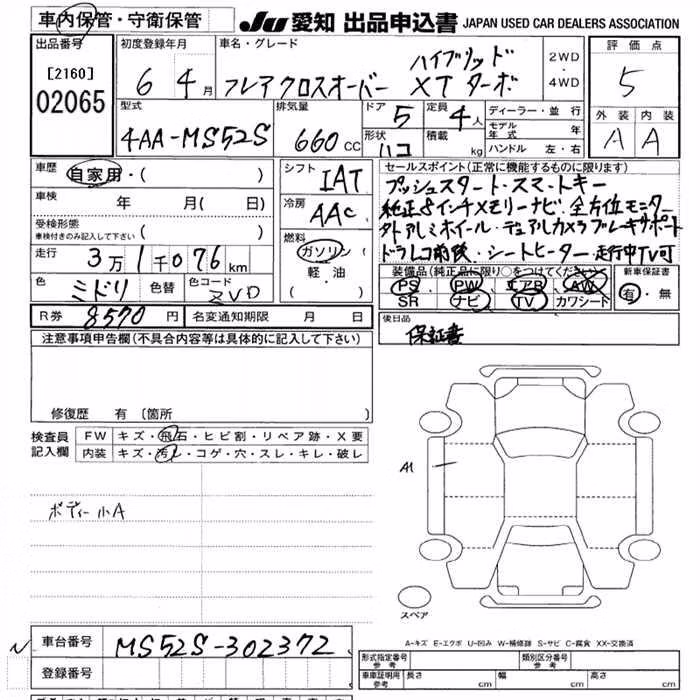 車内保管・守衛保管
JU 愛知 出品申込書 JAPAN USED CAR DEALERS ASSOCIATION
出品番号
[2160]
02065
初度登録年月
6 年 4 月
車名・グレード
フレアクロスオーバー ハイブリッド XTターボ
2WD
・
4WD
評価点
5
外装 内装
A A
型式
4AA-MS52S
排気量
660 CC
ドア 5
形状 ハコ
定員 4 人
積載 kg
ディーラー・並行
モデル年式 年
ハンドル 左・右
車歴 自家用・( )
車検 年 月( 日)
受検形態
車検付きのみ記入して下さい ( )
走行 3万1千076km
色 ミドリ 色替 色コード ZVD
R券 8570 円 名変通知期限 月 日
シフト IAT
冷房 AAC
燃料
ガソリン
軽油
( )
セールスポイント(正常に機能するものに限ります)
プッシュスタート・スマートキー
純正8インチメモリーナビ・全方位モニター
外アルミホイール・デュアルカメラブレーキサポート
ドラレコ前後・シートヒーター・走行中TV可
装備品(純正品に限り○をつけてください)
PS PW エアB AW
SR ナビ TV カワシート
新車保証書
有・無
後日品
保証書
注意事項申告欄(不具合内容等は具体的に記入して下さい)
修復歴 有 〔箇所 〕
検査員記入欄
FW キズ・飛石・ヒビ割・リペア跡・X要
内装 キズ・汚レ・コゲ・穴・スレ・キレ・破レ
ボディー小A
A1
スペア
A-キズ E-エクボ U-凹み W-補修跡 S-サビ C-腐食 XX-交換済
車台番号 MS52S-302372
登録番号
形式指定番号 参考
類別区分番号 参考
車庫証明用 参考
長さ cm 幅 cm 高さ cm